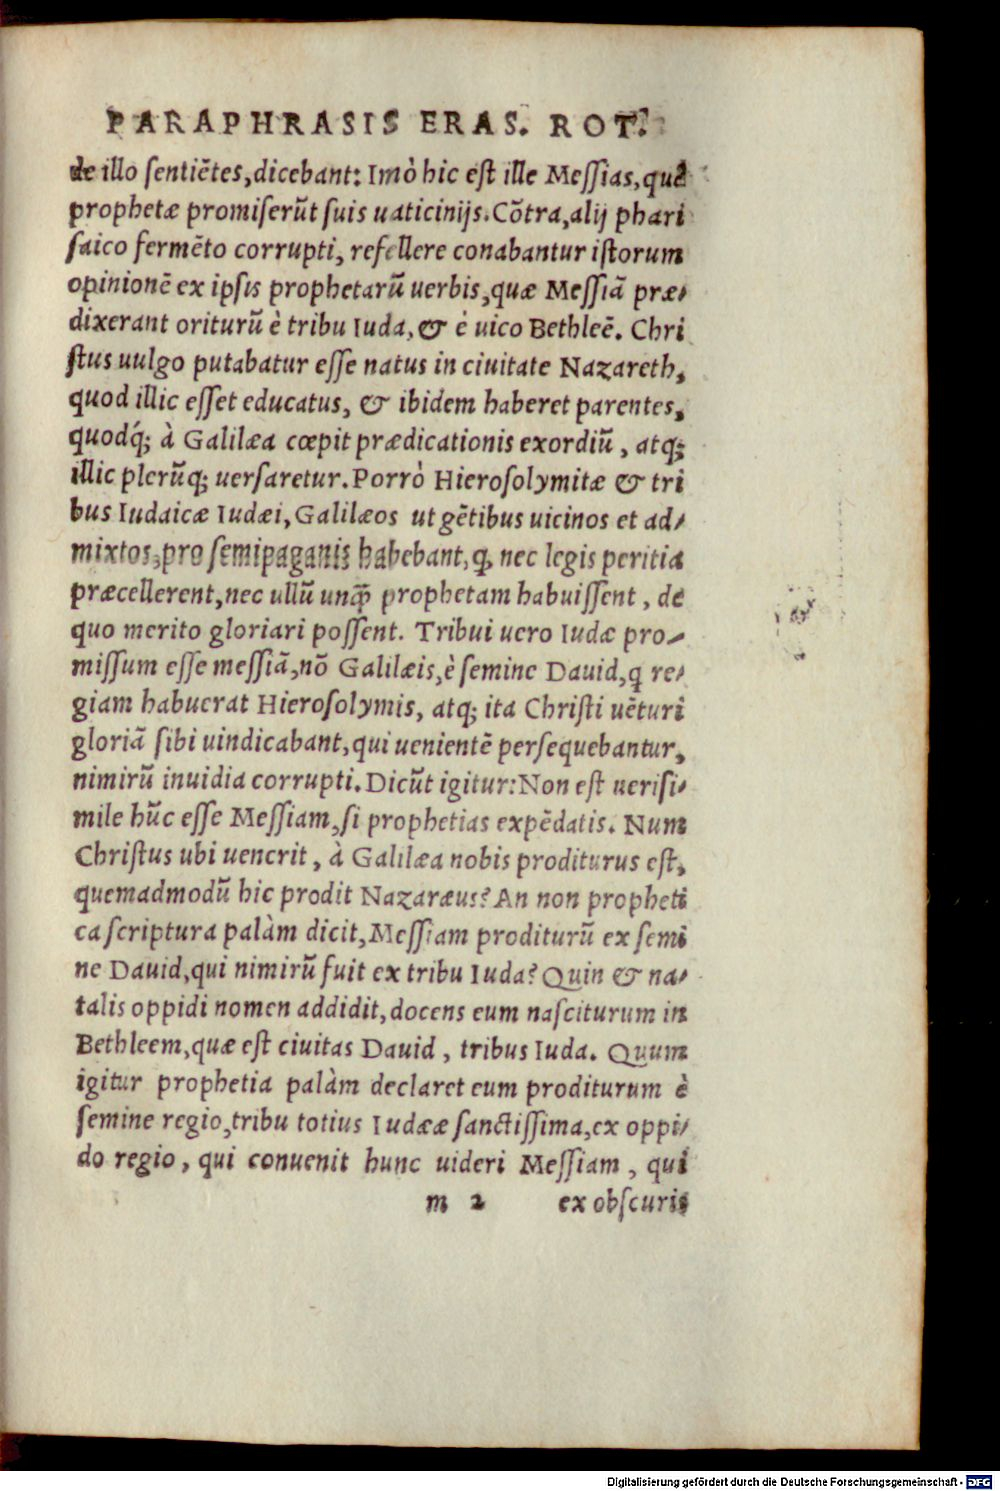 PARAPHRASIS ERAS. ROT.
de illo sentiẽtes, dicebant: Imò hic est ille Messias, quẽ
prophetæ promiserũt suis uaticinijs. Cõtra, alij phari
saico fermẽto corrupti, refellere conabantur istorum
opinionẽ ex ipsis prophetarũ uerbis, quæ Messiã præ-
dixerant oriturũ è tribu Iuda, & è uico Bethleẽ. Chri
stus uulgo putabatur esse natus in ciuitate Nazareth,
quod illic esset educatus, & ibidem haberet parentes,
quodq́; à Galilæa cœpit prædicationis exordiũ, atq;
illic plerũq; uersaretur. Porrò Hierosolymitæ & tri
bus Iudaicæ Iudæi, Galilæos ut gẽtibus uicinos et ad-
mixtos, pro semipaganis habebant, ꝙ nec legis peritia
præcellerent, nec ullũ unꝙ̃ prophetam habuissent, de
quo merito gloriari possent. Tribui uero Iudæ pro-
missum esse messiã, nõ Galilæis, è semine Dauid, ꝗ re-
giam habuerat Hierosolymis, atq; ita Christi uẽturi
gloriã sibi uindicabant, qui uenientẽ persequebantur,
nimirũ inuidia corrupti. Dicũt igitur: Non est uerisi-
mile hũc esse Messiam, si prophetias expẽdatis. Num
Christus ubi uenerit, à Galilæa nobis proditurus est,
quemadmodũ hic prodit Nazaræus? An non propheti
ca scriptura palàm dicit, Messiam proditurũ ex semi
ne Dauid, qui nimirũ fuit ex tribu Iuda? Quin & na-
talis oppidi nomen addidit, docens eum nasciturum in
Bethleem, quæ est ciuitas Dauid, tribus Iuda. Quum
igitur prophetia palàm declaret eum proditurum è
semine regio, tribu totius Iudææ sanctissima, ex oppi-
do regio, qui conuenit hunc uideri Messiam, qui
m 2 ex obscuris
Digitalisierung gefördert durch die Deutsche Forschungsgemeinschaft - DFG